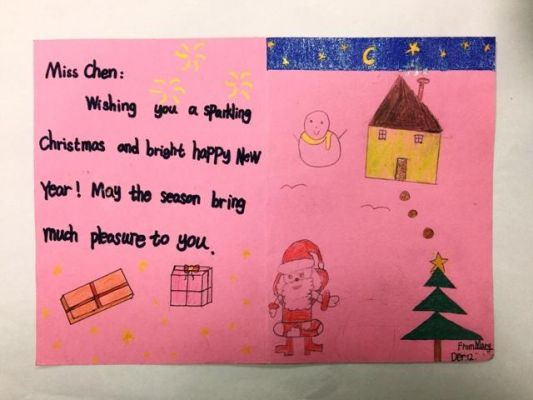 Miss Chen:
Wishing you a sparkling
Christmas and bright happy New
Year! May the season bring
much pleasure to you.
From:Mary